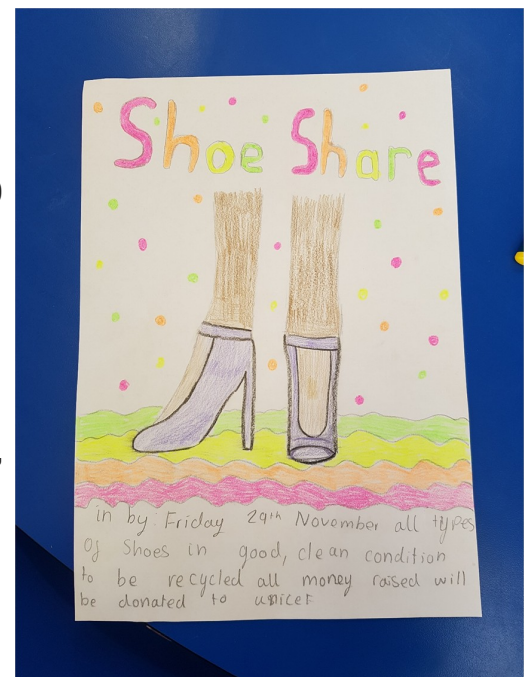 Shoe Share
in by: Friday 29th November all types
of Shoes in good, clean condition
to be recycled all money raised will
be donated to unicef